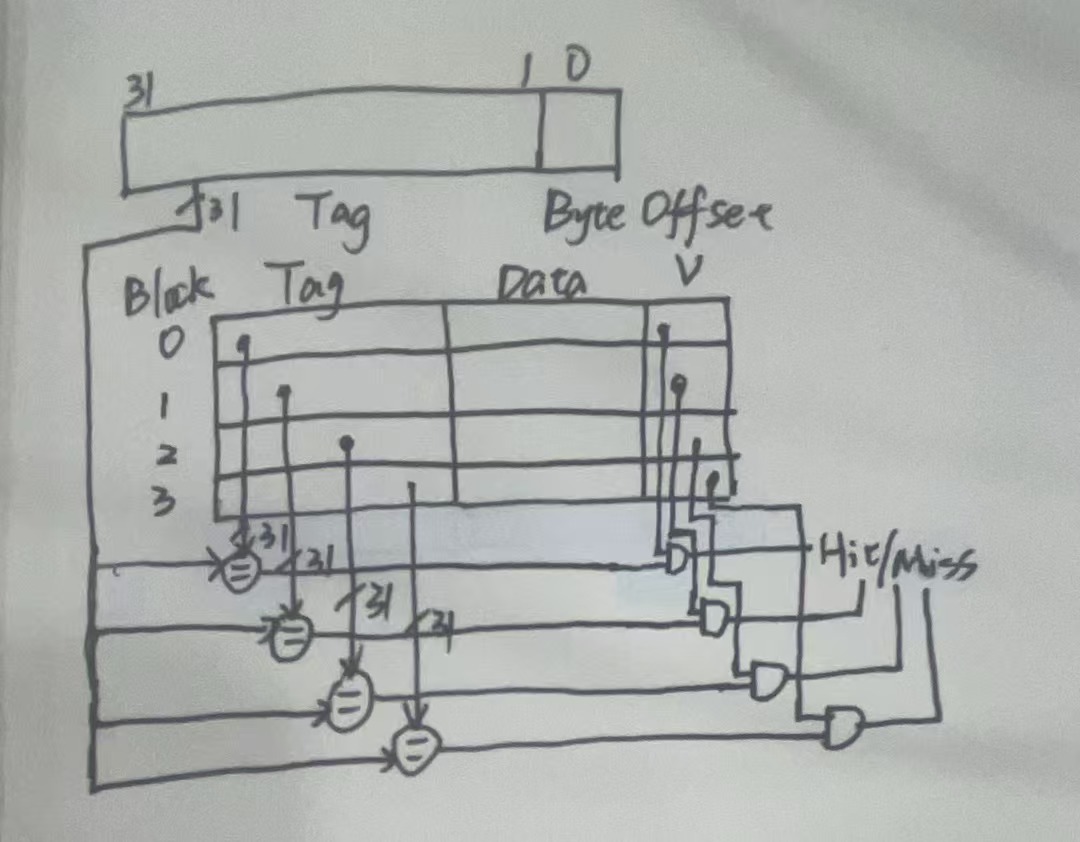 31 1 0
31 Tag Byte Offset
Block Tag Data V
0
1
2
3
31
31
31
31
=
=
=
=
Hit/Miss